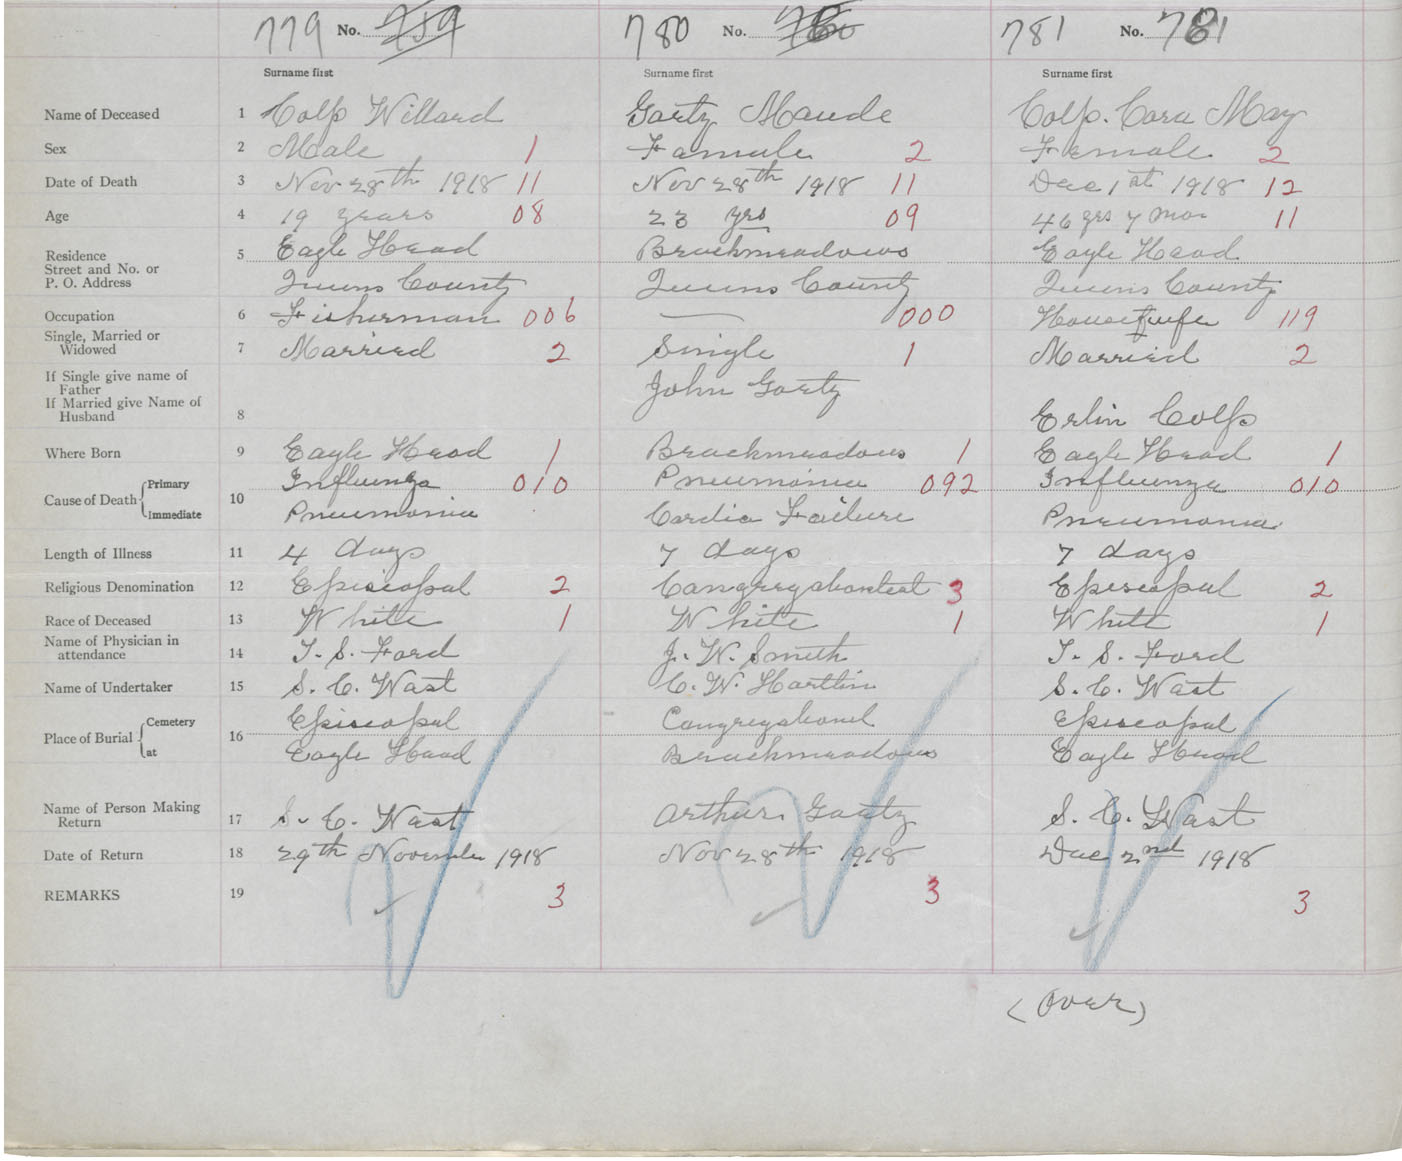 779 No. 759 780 No. 760 781 No. 781
Surname first Surname first Surname first
Name of Deceased 1 Colp Willard Gaetz Maude Colp. Cora May
Sex 2 Male 1 Famale 2 Female 2
Date of Death 3 Nov 28th 1918 11 Nov 28th 1918 11 Dec 1st 1918 12
Age 4 19 years 08 23 yrs 09 46 yrs 7 mos 11
Residence 5 Eagle Head Beachmeadows Eagle Head
Street and No. or
P. O. Address Queens County Queens County Queens County
Occupation 6 Fisherman 006 — 000 Housewife 119
Single, Married or
Widowed 7 Married 2 Single 1 Married 2
If Single give name of
Father John Gaetz
If Married give Name of
Husband 8 Erlin Colp
Where Born 9 Eagle Head 1 Beachmeadows 1 Eagle Head 1
Cause of Death Primary 10 Influenza 010 Pneumonia 092 Influenza 010
Immediate Pneumonia Cardia Failure Pneumonia
Length of Illness 11 4 days 7 days 7 days
Religious Denomination 12 Episcopal 2 Congregationalist 3 Episcopal 2
Race of Deceased 13 White 1 White 1 White 1
Name of Physician in
attendance 14 T. S. Ford J. W. Smith T. S. Ford
Name of Undertaker 15 S. C. Wast C. W. Hartlin S. C. Wast
Place of Burial Cemetery 16 Episcopal Congregational Episcopal
at Eagle Head Beachmeadows Eagle Head
Name of Person Making
Return 17 S. C. Wast Arthur Gaetz S. C. Wast
Date of Return 18 29th November 1918 Nov 28th 1918 Dec 2nd 1918
REMARKS 19 3 3 3
(over)